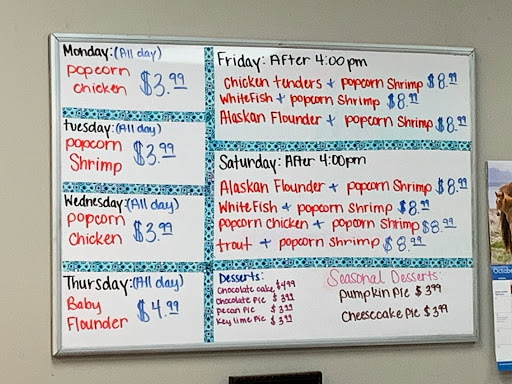 Monday: (All day)
popcorn
chicken $3.99
Tuesday: (All day)
popcorn
Shrimp $3.99
Wednesday: (All day)
popcorn
Chicken $3.99
Thursday: (All day)
Baby
Flounder $4.99
Friday: After 4:00pm
Chicken tenders + popcorn Shrimp $8.99
WhiteFish + popcorn Shrimp $8.99
Alaskan Flounder + popcorn Shrimp $8.99
Saturday: After 4:00pm
Alaskan Flounder + popcorn Shrimp $8.99
White Fish + popcorn Shrimp $8.99
popcorn chicken + popcorn Shrimp $8.99
trout + popcorn Shrimp $8.99
Desserts:
Chocolate cake $4.99
Chocolate Pie $3.99
Pecan Pie $3.99
Key lime Pie $3.99
Seasonal Desserts:
Pumpkin Pie $3.99
Cheesecake Pie $3.99
October